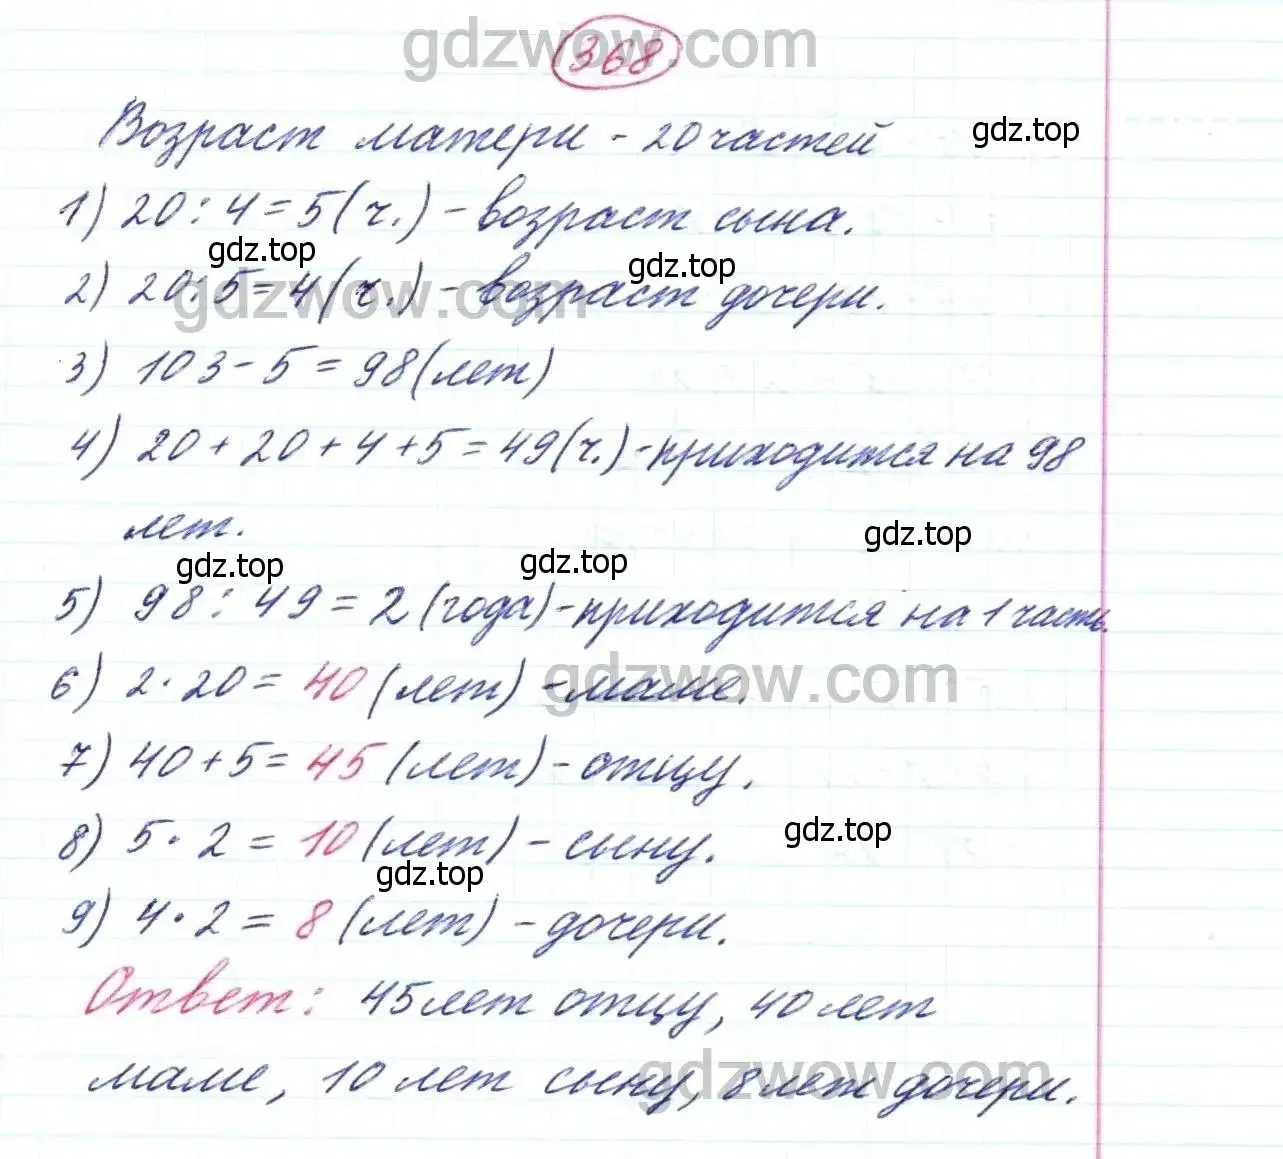 gdzwow.com
368
Возраст матери - 20 частей
gdz.top
1) 20 : 4 = 5 (ч.) - возраст сына.
gdz.top
gdz.top
2) 20 : 5 = 4 (ч.) - возраст дочери.
gdzwow.com
3) 103 - 5 = 98 (лет)
4) 20 + 20 + 4 + 5 = 49 (ч.) - приходится на 98
лет.
gdz.top
gdz.top
gdz.top
5) 98 : 49 = 2 (года) - приходится на 1 часть.
gdzwow.com
6) 2 · 20 = 40 (лет) - маме.
7) 40 + 5 = 45 (лет) - отцу.
gdz.top
8) 5 · 2 = 10 (лет) - сыну.
gdz.top
9) 4 · 2 = 8 (лет) - дочери.
Ответ: 45 лет отцу, 40 лет
маме, 10 лет сыну, 8 лет дочери.
gdzwow.com